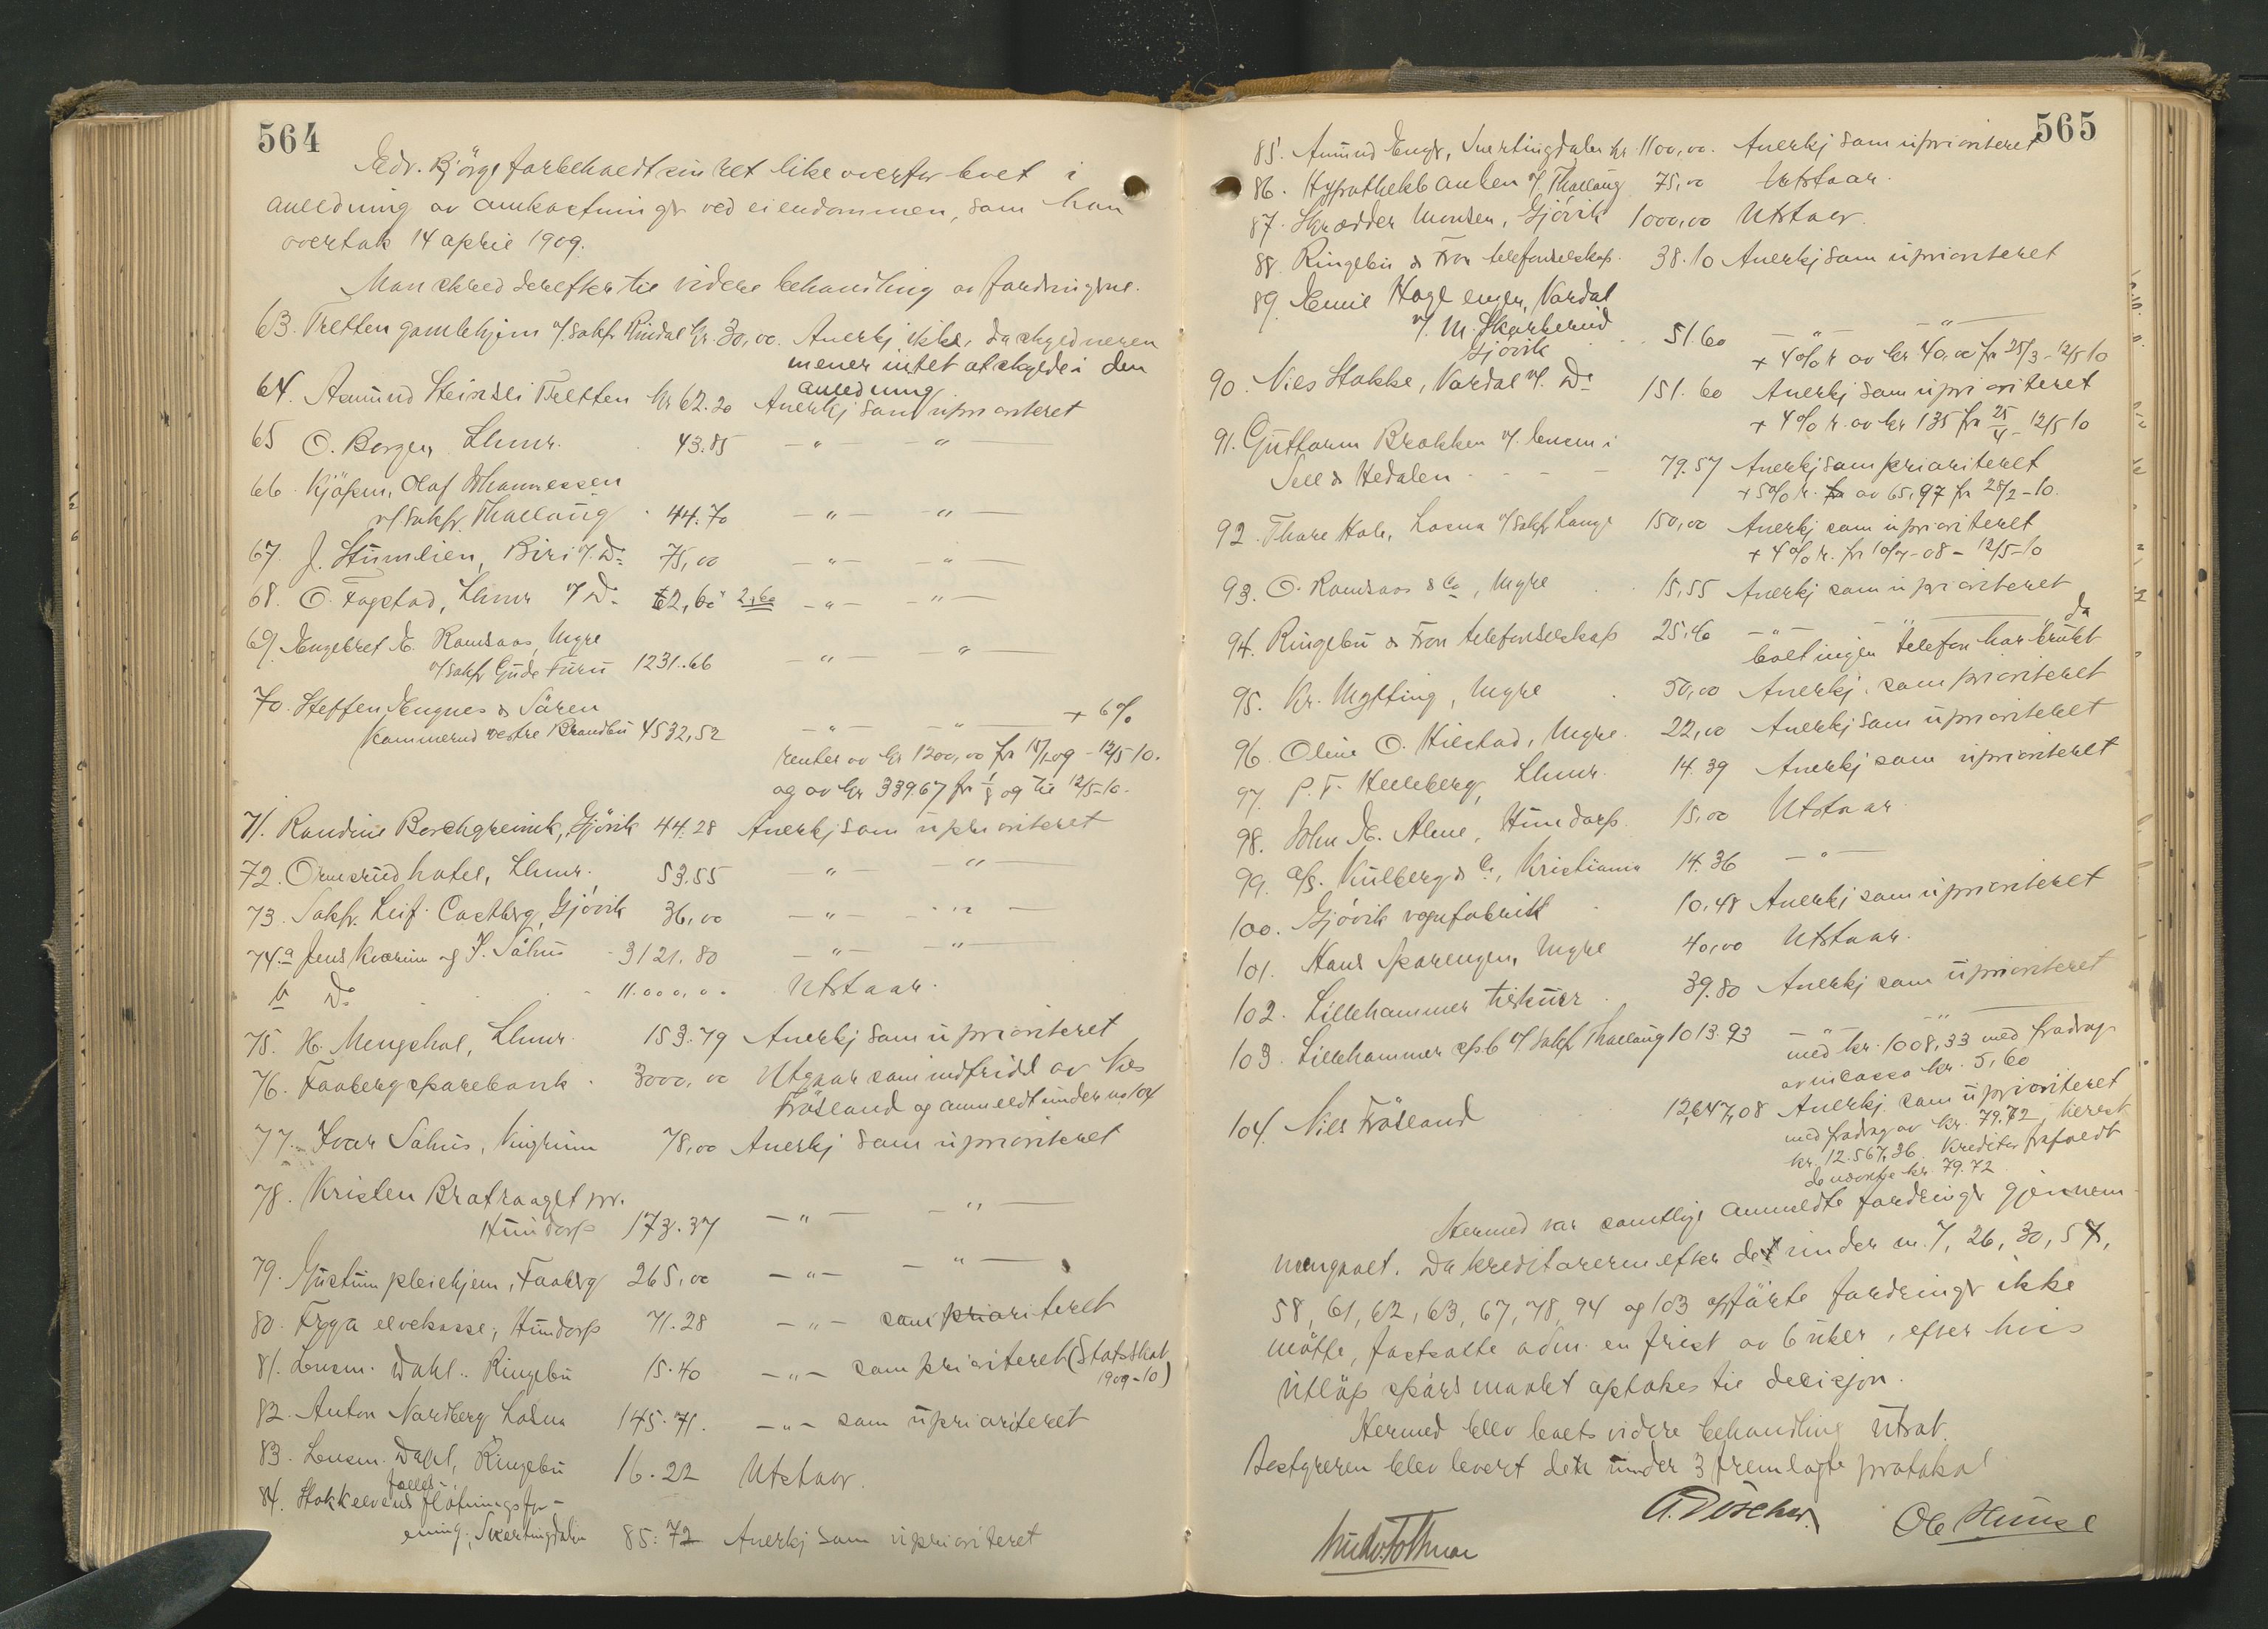 564
Edv. Björge forbeholdt sin ret like overfor boet i
anledning av omkostninger ved eiendommen, som han
overtok 14 april 1909.
Man skred derefter til videre behandling av fordringerne.
63. Tretten gamlehjem v/ sakf. Rindal kr. 30,00. Anerkj ikke, da skyldneren
mener intet at skylde i den
anledning
64. Asmund Steinsli Tretten kr 62.20 Anerkj som uprioriteret
65 O. Borgen Lhmr. 43.85 — " — — " —
66. Kjöpm. Olaf Johannessen
v/ sakf. Thallaug 44.70 — " — — " —
67. J. Stumlien, Biri v. Do 75,00 — " — — " —
68. O. Fagstad, Lhmr v Do 62,60 2,60 — " — — " —
69. Engebret E. Ramsaas, Ungre
v/ sakf Gude Furu 1231.66 — " — — " —
70. Steffen Engnes & Sören
Kammerud vestre Brandbu 4532,52 — " — — " — + 6%
renter av kr 1200,00 fra 15/1-09 - 12/5-10.
og av kr 339.67 fra 1/8 09 til 12/5-10.
71. Randine Borchgrevink, Gjövik 44.28 Anerkj som uprioriteret
72. Ormsrud hotel, Lhmr. 53.55 — " — — " —
73. Sakf. Leif Castberg, Gjövik 36,00 — " — — " —
74.a Jens Kværum og J. Sålus 3121.80 — " — — " —
b Do 11.000,00 Utstaar.
75. H. Mengshol, Lhmr. 153.79 Anerkj som uprioriteret
76. Faaberg sparebank. 3000,00 Utgaar som indfridd av Nils
Fråsland og anmeldt under no 104
77. Ivar Sålus, Vingrum 78,00 Anerkj som uprioriteret
78. Kristen Bratraaget pr.
Hundorp 173.37 — " — — " —
79. Justum pleiehjem, Faaberg 265,00 — " — — " —
80. Frya elvekasse, Hundorp 71.28 — " — som prioriteret
81. Lensm. Dahl. Ringebu 15.40 — " — som prioriteret (Statsskat
1909-10)
82. Anton Nordberg Losna 145.71. — " — som uprioriteret
83. Lensm. Dahl, Ringebu 16.22 Utstaar.
84. Stokkelvens fælles flötningsfor-
ening, Snertingdalen 85.72 Anerkj som uprioriteret
565
85. Amund Engr, Snertingdalen kr. 1100,00. Anerkj som uprioriteret
86. Hypothekbanken v/ Thallaug 75,00 Utstaar.
87. Skrædder Monsen, Gjövik 1000,00 Utstaar.
88. Ringebu & Fron telefonselskap. 38.10 Anerkj som uprioriteret
89. Emil Haglengen, Vardal
v. M. Skarberud
Gjövik 51.60 — " — — " —
+ 4% r av kr. 40,00 fra 25/3 - 12/5 10
90. Nils Stokke, Vardal v. Do 151.60 Anerkj som uprioriteret
+ 4% r. av kr 135 fra 25/4 - 12/5 10
91. Guttorm Brokken v. lensm i
Sell & Hedalen 79.57 Anerkj som prioriteret
+ 5% r. av 65,97 fra 28/2-10.
92. Thore Hole, Losna v/ sakf Lange 150,00 Anerkj som uprioriteret
+ 4% r. fra 10/7-08 - 12/5-10
93. O. Ramsaas & Co, Ungre 15,55 Anerkj som uprioriteret
94. Ringebu & Fron telefonselskap 25.40 — " — — " — da
boet ingen telefon har brukt
95. Kr. Mytting, Ungre 50,00 Anerkj. som prioriteret
96. Oline O. Kilstad, Ungre. 22,00 Anerkj som uprioriteret
97. P. F. Helleberg, Lhmr. 14.39 Anerkj som uprioriteret
98. John E. Alme, Hundorp. 15,00 Utstaar
99. A/S. Kulberg & Co, Kristiania 14.36 — " —
100. Gjövik vognfabrikk 10.48 Anerkj som uprioriteret
101. Hans Sparengen, Ungre 40,00 Utstaar.
102. Lillehammer tilskuer 39.80 Anerkj som uprioriteret
103. Lillehammer spb v/ sakf Thallaug 1013.93 — " — — " —
med kr. 1008,33 med fradrag
av incasso kr. 5,60
104. Nils Fråsland 12,647,08 Anerkj. som uprioriteret
med fradrag av kr. 79.72, herest
kr. 12.567,36. Kreditor frafaldt
de nævnte kr. 79.72.
Hermed var samtlige anmeldte fordringer gjennem-
mengaaet. Da kreditorerne efter det under nr. 7, 26, 30, 57,
58, 61, 62, 63, 67, 78, 94 og 103 opförte fordringer ikke
mötte, fastsatte adm. en frist av 6 uker, efter hvis
utløp spörsmaalet optakes til decisjon.
Hermed blev boets videre behandling utsat.
Bestyreren blev levert den under 3 fremlagte protokol
Ole Hunse